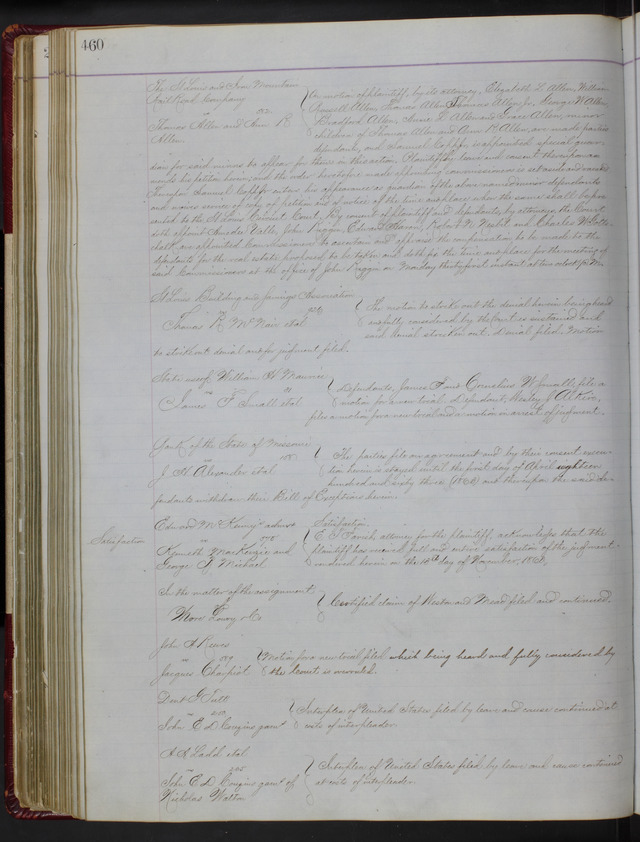 460
The St Louis and Iron Mountain
Rail Road Company
vs
Thomas Allen and Ann R
Allen
On motion of plaintiff, by its attorney, Elizabeth L Allen, William
Russell Allen, Thomas Allen Jr, George W Allen
Bradford Allen, Annie L Allen and Grace Allen, minor
children of Thomas Allen and Ann R Allen, are made parties
defendants, and Samuel is appointed special guar-
dian for said minors to appear for them in this action. Plaintiff by leave and consent
and the order heretofore made appointing commissioners is set aside and
Samuel enters his appearance as guardian of the above named minor defendants
and waives service of copy of petition and of notice of the time and place when the same shall be pre-
sented to the St Louis Circuit Court. By consent of plaintiff and defendants, by attorneys, the Court
doth appoint Wells, John Riggin, Edward and Charles
who are appointed Commissioners to ascertain and appraise the compensation to be made to the
defendants for the real estate proposed to be taken and doth fix the time and place for the meeting of
said Commissioners at the office of John Riggin on Monday thirty first instant at ten o'clock
St Louis Building and Savings Association
Thomas R McNair et al
The motion to strike out the denial herein being heard
and fully considered by the Court is sustained and
said denial stricken out. Denial filed. Motion
to strike out denial and for judgment filed.
State use of William H
vs
James F Small et al
Defendants, James F and Cornelius W Small, file a
motion for a new trial. Defendant, Wesley J
files a motion for a new trial and a motion in arrest of judgment.
Bank of the State of Missouri
vs
J H Alexander et al
The parties file an agreement and by their consent execu-
tion herein is stayed until the first day of April eighteen
hundred and sixty three (1863) and thereupon the said de-
fendants withdraw their Bill of Exceptions herein.
Satisfaction
Edward
vs
Kenneth MacKenzie and
George Michael
Satisfaction
E T Farish attorney for the plaintiff, acknowledges that the
plaintiff has received full and entire satisfaction of the judgment
rendered herein on the 18th day of November, 1862.
In the matter of the assignment
& Co
Certified claim of Weston and Mead filed and continued.
John A
vs
Jacques
Motion for a new trial filed which being heard and fully considered by
the Court is overruled.
Dent G Tutt
vs
John E D Cozzins garn't
Interplea of United States filed by leave and cause continued at
costs of interpleader.
A A Ladd et al
vs
John E D Cozzins garn't of
Nicholas Walton
Interplea of United States filed by leave and cause continued
at costs of interpleader.